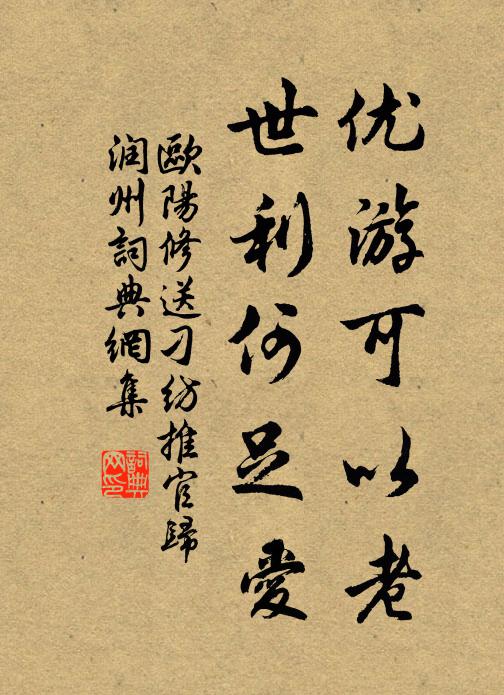 优游可以老
世利何足愛
歐陽修送刁纺推官歸
润州詞典網集
詞典
网印